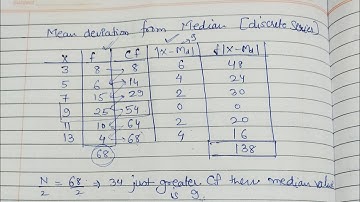 Mean deviation from Median [discrete series]
9
x f Cf |X-Md| f|X-Md|
3 8 8 6 48
5 6 14 4 24
7 15 29 2 30
9 25 54 0 0
11 10 64 2 20
13 4 68 4 16
68 138
N/2 = 68/2 ⇒ 34 just greater Cf then median value
is 9.